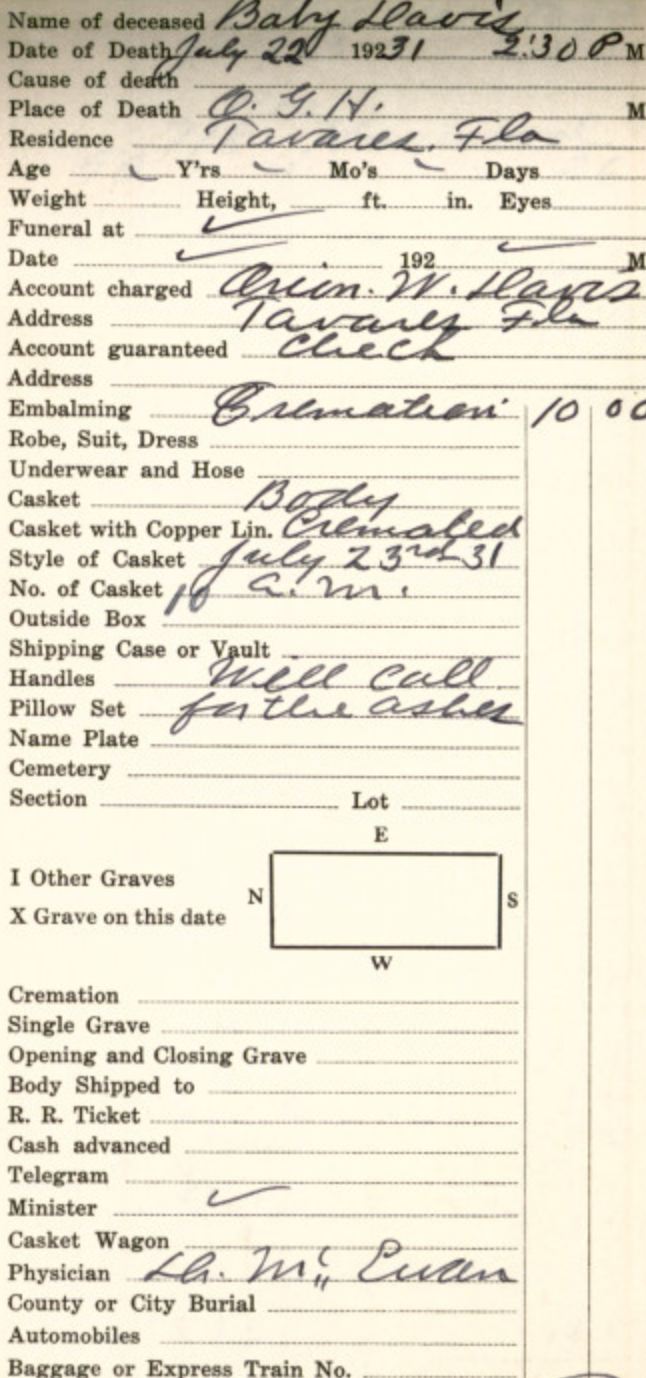 Name of deceased Baby Davis
Date of Death July 22 19231 2:30 P M
Cause of death
Place of Death O. G. H. M
Residence Tavares, Fla
Age Y'rs Mo's Days
Weight Height, ft. in. Eyes
Funeral at
Date 192 M
Account charged Orion. W. Davis
Address Tavares Fla
Account guaranteed Check
Address
Embalming Cremation 10 00
Robe, Suit, Dress
Underwear and Hose
Casket Body
Casket with Copper Lin. Cremated
Style of Casket July 23rd 31
No. of Casket 10 a.m.
Outside Box
Shipping Case or Vault
Handles Will call
Pillow Set for the ashes
Name Plate
Cemetery
Section Lot
E
I Other Graves
N S
X Grave on this date
W
Cremation
Single Grave
Opening and Closing Grave
Body Shipped to
R. R. Ticket
Cash advanced
Telegram
Minister
Casket Wagon
Physician Dr. Mc Ewan
County or City Burial
Automobiles
Baggage or Express Train No.